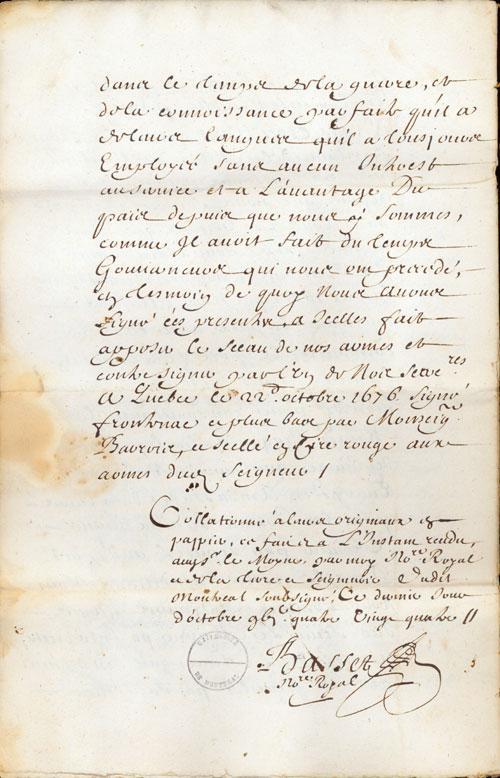 dans le temps de la guerre, et
de la connoissance parfaite qu'il a
de leurs langues qu'il a tousjours
Employé sans aucun Intherest
au service et a L'auantage Du
païs depuis que nous y sommes,
comme Il auoit fait du temps
Gouuerneurs qui nous ont precedé,
En tesmoin de quoy Nous auons
signé ces presentes, a Icelles fait
apposer le sceau de nos armes et
contresigner par l'un de Nos Secre.res
A Quebec le 22.d octobre 1676. Signé
frontenac et plus bas par Monseig.r
Barrois, et scellé en Cire rouge aux
armes dud. Seigneur /
Collationné à leurs originaux En
pappier, ce fait et a L'Instant rendu,
aud.s.r le Moyne, par moy No.re Royal
et de la terre et Seigneurie dudit
Montreal soubsigné, Ce dernier Jour
d'octobre g bj.c quatre vingt quatre //
Basset
No.re Royal